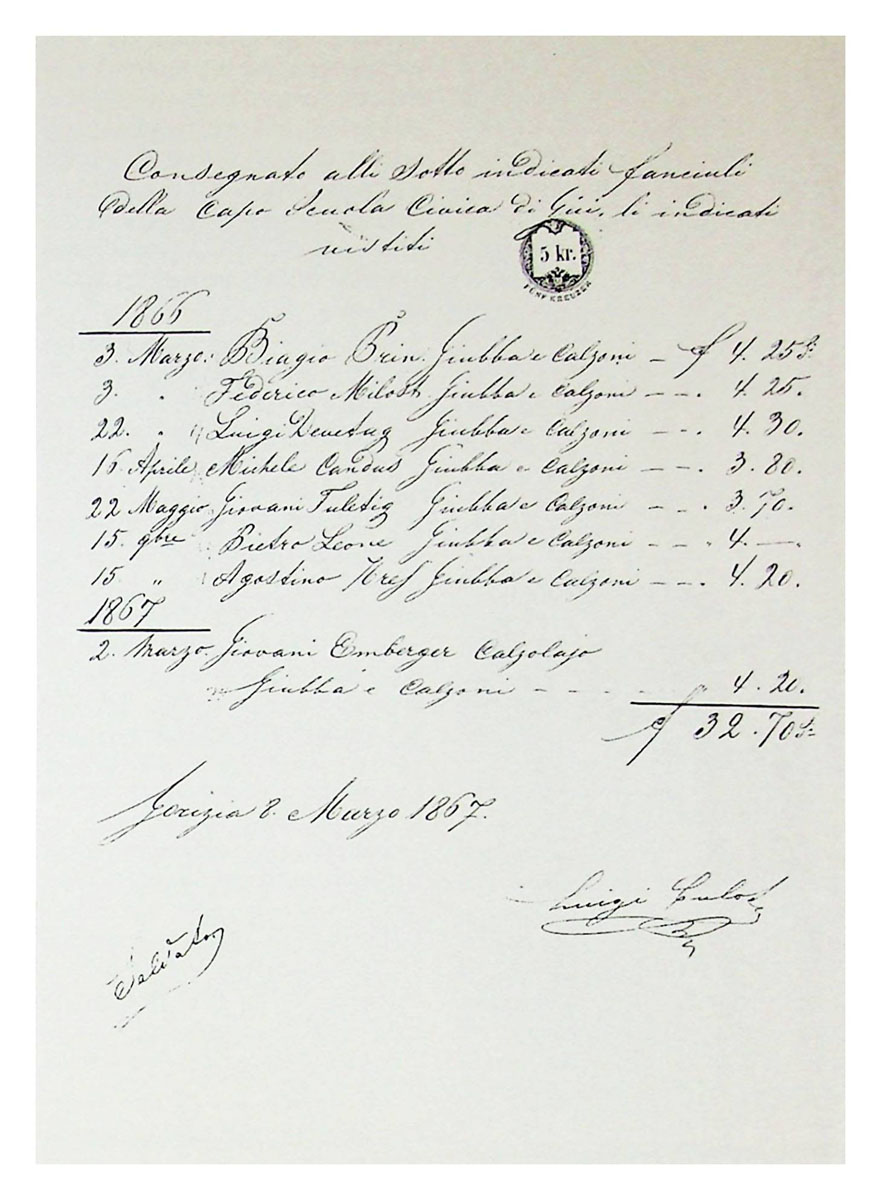 Consegnato alli sotto indicati fanciuli
della Capo Scuola Civica di Gui. li indicati
vistiti
5 kr.
FÜNF KREUZER
1866
3. Marzo: Biagio Prin. Giubba e Calzoni – f 4. 25 S:
3. " Federico Milost Giubba e Calzoni – – . 4. 25.
22. " Luigi Devetag Giubba e Calzoni – – . 4. 30.
16 Aprile Michele Candus Giubba e Calzoni – – . 3. 80.
22 Maggio Giovani Tuletig Giubba e Calzoni – – . 3. 70.
15. 9bre Pietro Leone Giubba e Calzoni – – " 4. –.
15 " Agostino Giubba e Calzoni – – . 4. 20.
1867
2. Marzo. Giovani Emberger Calzolajo
Giubba e Calzoni – – – – " 4. 20.
f 32. 70 S:
Gorizia 8. Marzo 1867.
Luigi Culot
Saldato